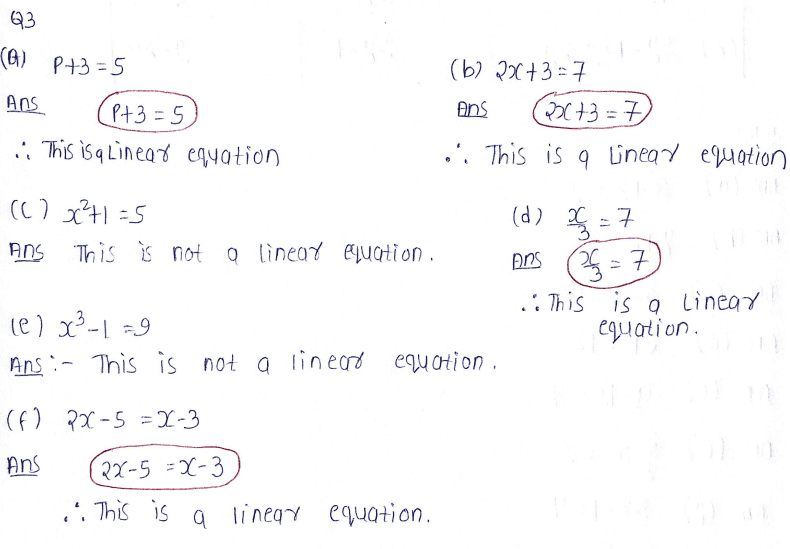 Q3
(a) P+3=5
Ans P+3=5
∴ This is a Linear equation
(b) 2x+3=7
Ans 2x+3=7
∴ This is a Linear equation
(c) x²+1=5
Ans This is not a linear equation.
(d) x/3=7
Ans x/3=7
∴ This is a Linear
equation.
(e) x³-1=9
Ans :- This is not a linear equation.
(f) 2x-5=x-3
Ans 2x-5=x-3
∴ This is a linear equation.